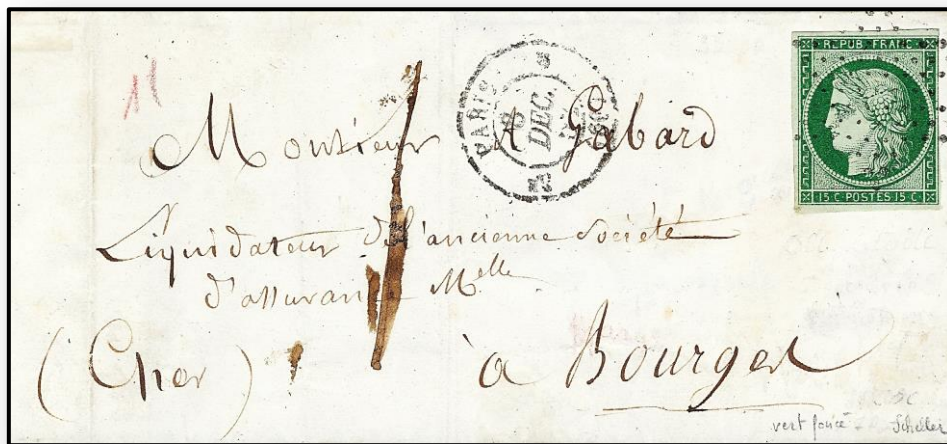 REPUB. FRANC.
15 C · POSTES · 15 C
PARIS
8
DEC.
Monsieur A Gabard
Liquidateur de l'ancienne Société
d'assurance Melle
(Cher) à Bourges
vert foncé
Scheller